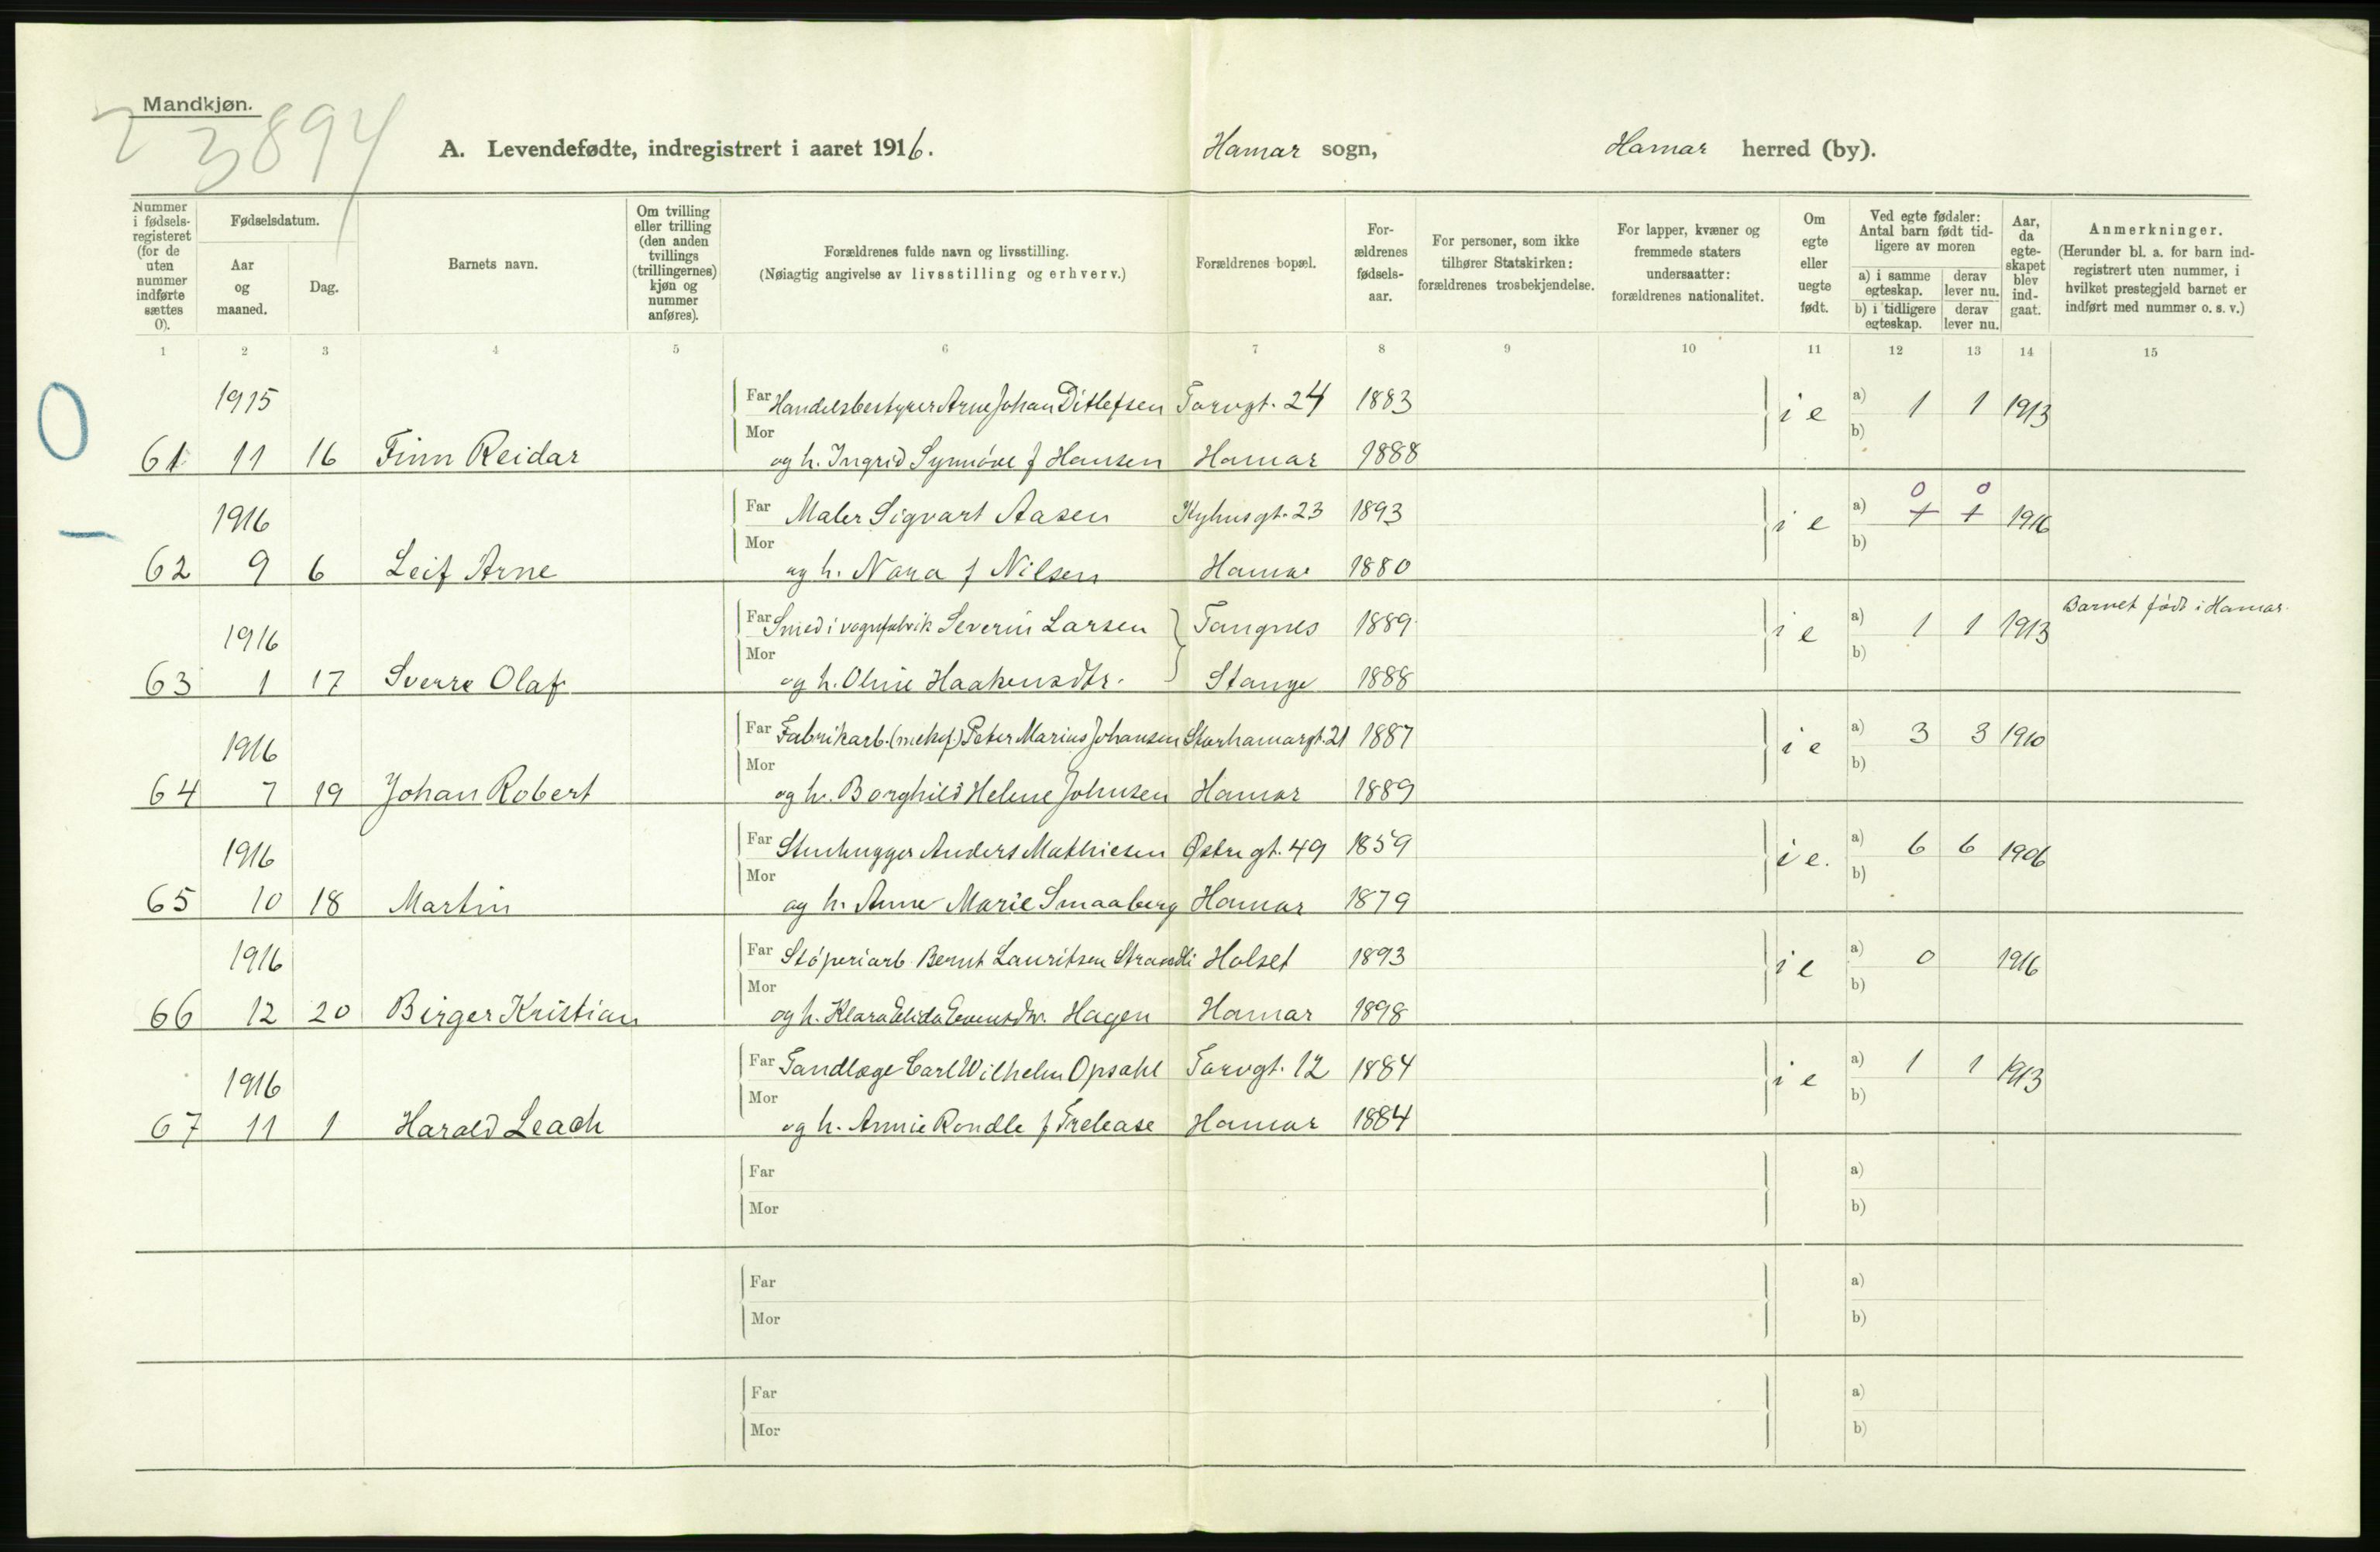 Mandkjøn.
2 3894
A. Levendefødte, indregistrert i aaret 1916.
Hamar sogn,
Hamar herred (by).
Nummer i fødsels-registeret (for de uten nummer indførte sættes 0).
Fødselsdatum.
Aar og maaned.
Dag.
Barnets navn.
Om tvilling eller trilling (den anden tvillings (trillingernes) kjøn og nummer anføres).
Forældrenes fulde navn og livsstilling.
(Nøiagtig angivelse av livsstilling og erhverv.)
Forældrenes bopæl.
For-ældrenes fødsels-aar.
For personer, som ikke tilhører Statskirken: forældrenes trosbekjendelse.
For lapper, kvæner og fremmede staters undersaatter: forældrenes nationalitet.
Om egte eller uegte født.
Ved egte fødsler: Antal barn født tid-ligere av moren
a) i samme egteskap.
derav lever nu.
b) i tidligere egteskap.
derav lever nu.
Aar, da egte-skapet blev ind-gaat.
Anmerkninger.
(Herunder bl. a. for barn ind-registrert uten nummer, i hvilket prestegjeld barnet er indført med nummer o. s. v.)
1 2 3 4 5 6 7 8 9 10 11 12 13 14 15
0
1915 Far Handelsbestyrer Arne Johan Ditlefsen Torvgt. 24 1883 i e a) 1 1 1913
61 11 16 Finn Reidar Mor og h. Ingrid Synnöve f Hansen Hamar 1888 b)
1916 Far Maler Sigvart Aasen Kyhusgt. 23 1893 i e a) 0 0 1916
62 9 6 Leif Arne Mor og h. Nara f Nilsen Hamar 1880 b)
1916 Far Smed i vognfabrik Severin Larsen Tangnes 1889 i e a) 1 1 1913 Barnet född i Hamar.
63 1 17 Sverre Olaf Mor og h. Oline Haakensdtr. Stange 1888 b)
1916 Far Fabrikarb. (mek) Peter Marius Johansen Storhamargt. 21 1887 i e a) 3 3 1910
64 7 19 Johan Robert Mor og h. Borghild Helene Johnsen Hamar 1889 b)
1916 Far Stenhugger Anders Mathiesen Østregt. 49 1859 i e. a) 6 6 1906
65 10 18 Martin Mor og h. Anne Marie Smaaberg Hamar 1879 b)
1916 Far Stöperiarb. Bernt Lauritsen Strandli Holset 1893 i e a) 0 1916
66 12 20 Birger Kristian Mor og h. Klara Elida Evensdtr. Hagen Hamar 1898 b)
1916 Far Tandlæge Carl Wilhelm Opsahl Torvgt. 12 1884 i e a) 1 1 1913
67 11 1 Harald Leach Mor og h. Annie Rondle f Trelease Hamar 1884 b)
Far a)
Mor b)
Far a)
Mor b)
Far a)
Mor b)